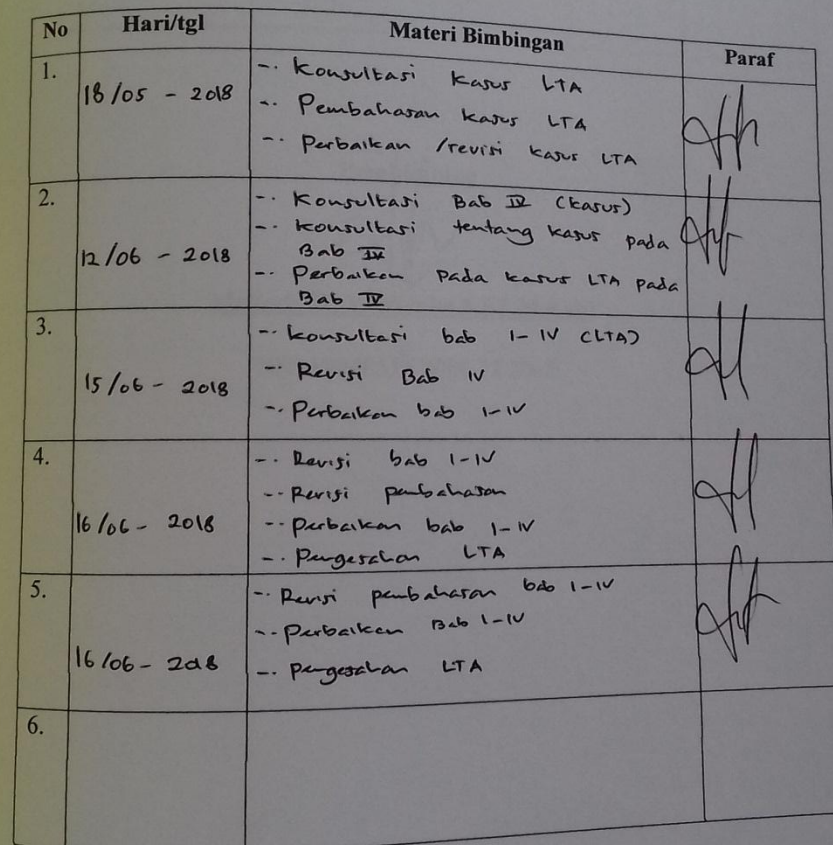 No Hari/tgl Materi Bimbingan Paraf
1.
18/05 - 2018
-. Konsultasi kasus LTA
-. Pembahasan kasus LTA
-. Perbaikan /revisi kasus LTA
2.
12/06 - 2018
-. Konsultasi Bab IV (kasus)
-. konsultasi tentang kasus pada
Bab IV
-. Perbaikan pada kasus LTA pada
Bab IV
3.
15/06 - 2018
-. konsultasi bab I-IV (LTA)
-. Revisi Bab IV
-. Perbaikan bab I-IV
4.
16/06 - 2018
-. Revisi bab I-IV
-. Revisi pembahasan
-. perbaikan bab I-IV
-. Pengesahan LTA
5.
16/06 - 2018
-. Revisi pembahasan bab I-IV
-. Perbaikan Bab I-IV
-. pengesahan LTA
6.